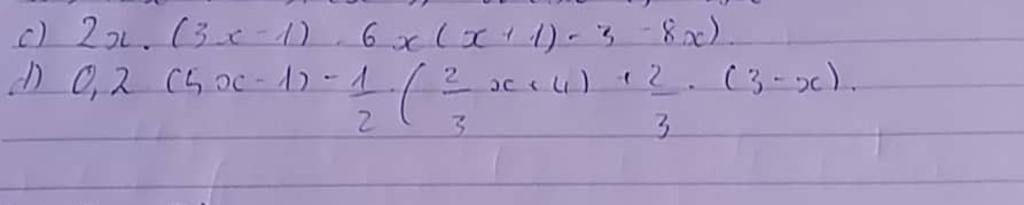 c) 2x. (3x-1) - 6x(x+1) - 3 - 8x).
d) 0,2 (5x-1) - 1/2 . ( 2/3 x + 4) + 2/3 . (3-x).